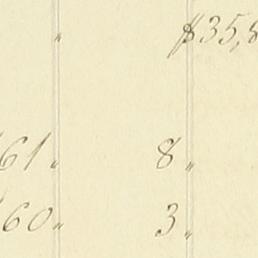 " $35,8
61 " 8 "
60 " 3 "